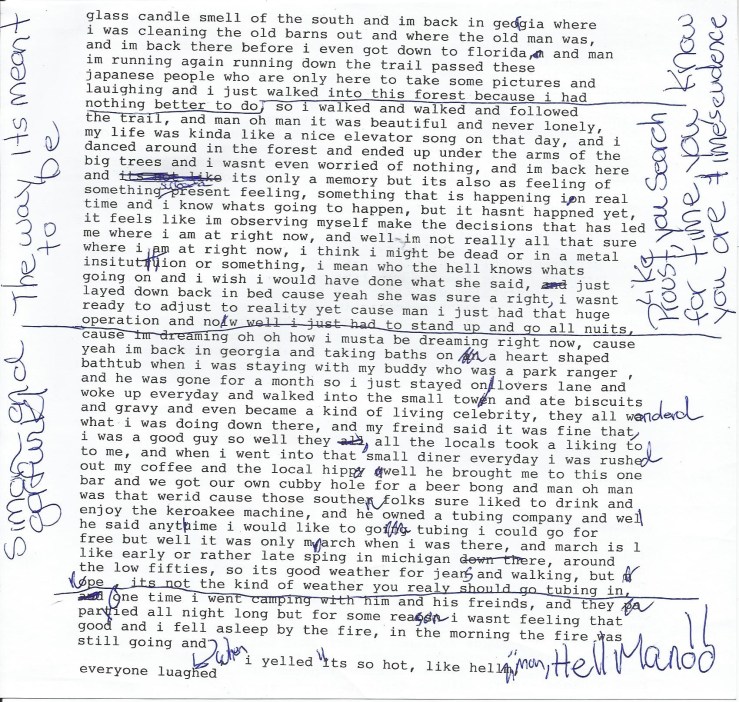 glass candle smell of the south and im back in geogia where
i was cleaning the old barns out and where the old man was,
and im back there before i even got down to florida, and man
im running again running down the trail passed these
japanese people who are only here to take some pictures and
lauighing and i just walked into this forest because i had
nothing better to do, so i walked and walked and followed
the trail, and man oh man it was beautiful and never lonely,
my life was kinda like a nice elevator song on that day, and i
danced around in the forest and ended up under the arms of the
big trees and i wasnt even worried of nothing, and im back here
and its not like its only a memory but its also as feeling of
something present feeling, something that is happening in real
time and i know whats going to happen, but it hasnt happned yet,
it feels like im observing myself make the decisions that has led
me where i am at right now, and well im not really all that sure
where i am at right now, i think i might be dead or in a metal
insitutition or something, i mean who the hell knows whats
going on and i wish i would have done what she said, and just
layed down back in bed cause yeah she was sure a right, i wasnt
ready to adjust to reality yet cause man i just had that huge
operation and now well i just had to stand up and go all nuts,
cause im dreaming oh oh how i musta be dreaming right now, cause
yeah im back in georgia and taking baths on a heart shaped
bathtub when i was staying with my buddy who was a park ranger ,
and he was gone for a month so i just stayed on lovers lane and
woke up everyday and walked into the small town and ate biscuits
and gravy and even became a kind of living celebrity, they all wonderd
what i was doing down there, and my freind said it was fine that,
i was a good guy so well they all, all the locals took a liking to
to me, and when i went into that small diner everyday i was rushed
out my coffee and the local hippy well he brought me to this one
bar and we got our own cubby hole for a beer bong and man oh man
was that werid cause those southern folks sure liked to drink and
enjoy the keroakee machine, and he owned a tubing company and well
he said anythime i would like to go tubing i could go for
free but well it was only march when i was there, and march is l
like early or rather late sping in michigan down there, around
the low fifties, so its good weather for jeans and walking, but
nope, its not the kind of weather you realy should go tubing in,
and one time i went camping with him and his freinds, and they
partied all night long but for some reason i wasnt feeling that
good and i fell asleep by the fire, in the morning the fire was
still going and when i yelled "its so hot, like hell, man, Hell Man!!
everyone luaghed
The way its meant
to be
Simon and
garfunkl
Like
Proust, you search
for time, you know
you are timesendence